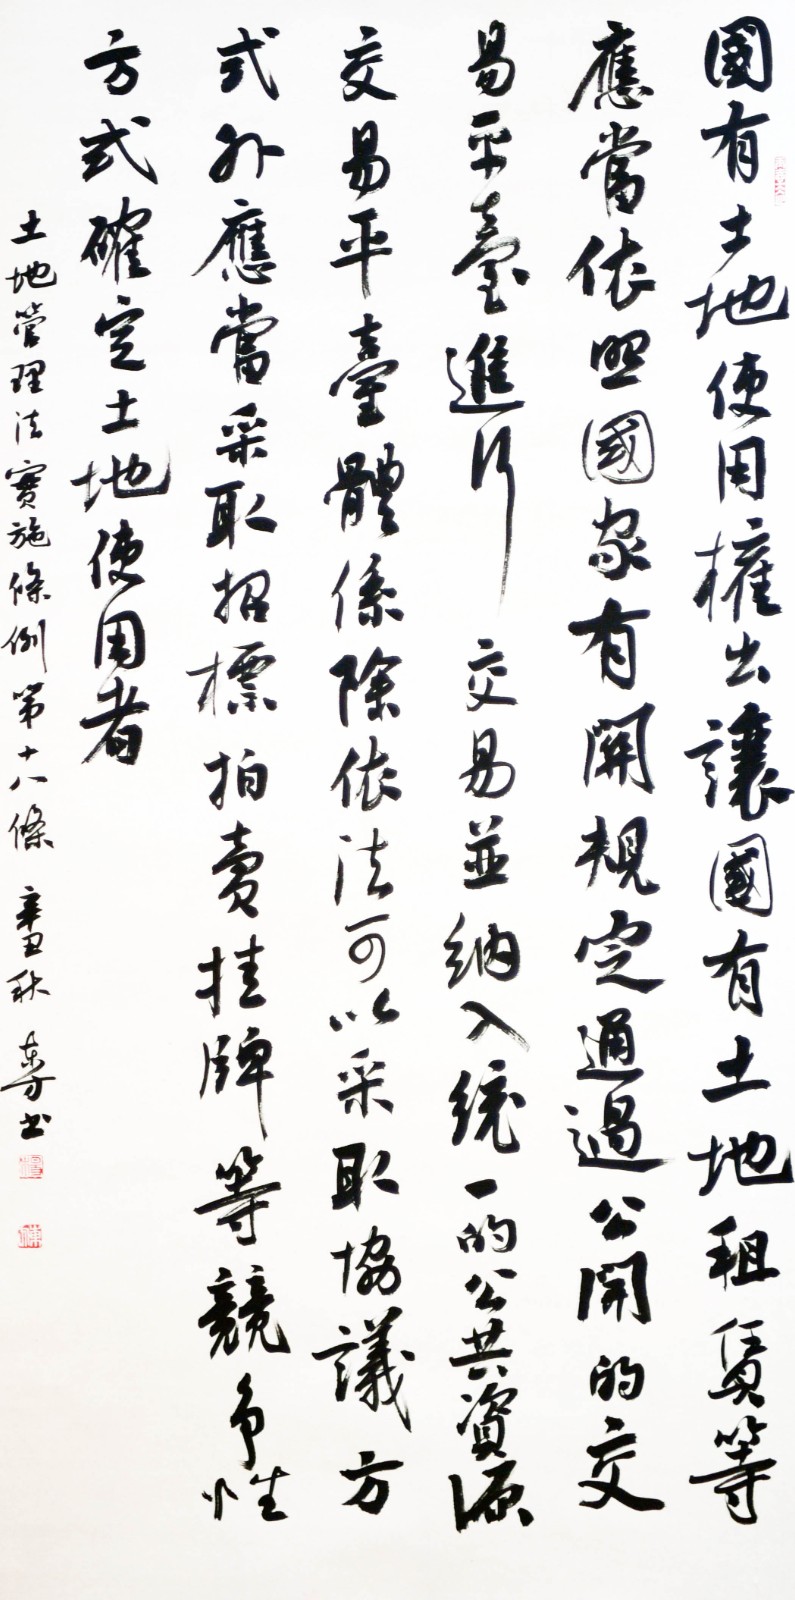 國有土地使用權出讓國有土地租賃等
應當依照國家有關規定通過公開的交
易平臺進行交易並納入統一的公共資源
交易平臺體係除依法可以采取協議方
式外應當采取招標拍賣挂牌等競争性
方式確定土地使用者
土地管理法實施條例第十八條 辛丑秋 東方书